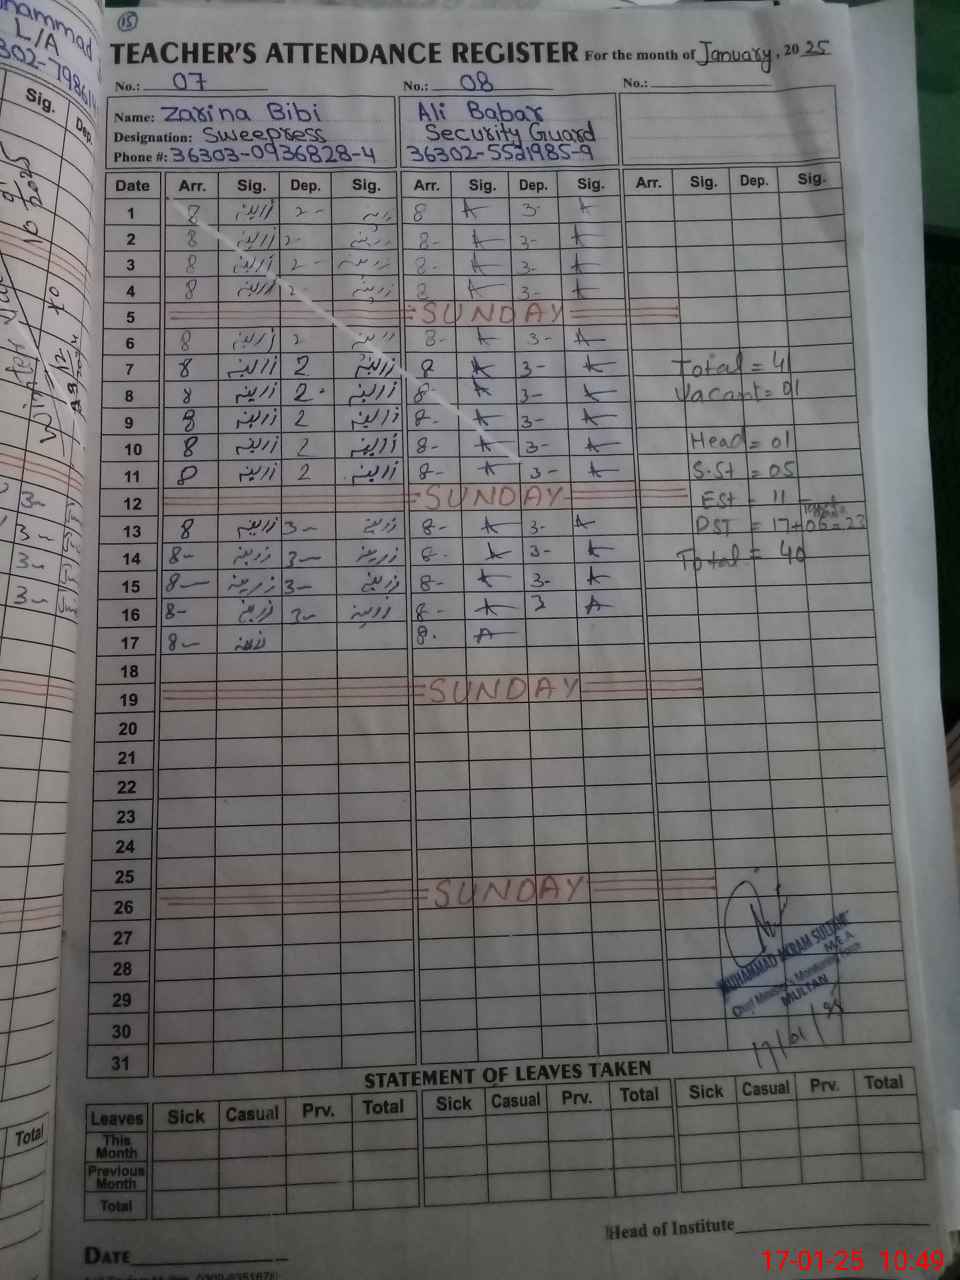 15
TEACHER'S ATTENDANCE REGISTER For the month of January, 2025
No.: 07 No.: 08 No.:
Name: Zarina Bibi Ali Babar
Designation: Sweepress Security Guard
Phone #: 36303-0936828-4 36302-5521985-9
Date Arr. Sig. Dep. Sig. Arr. Sig. Dep. Sig. Arr. Sig. Dep. Sig.
1 8 زرینہ 2- زرینہ 8 A 3- A
2 8 زرینہ 2- زرینہ 8- A 3- A
3 8 زرینہ 2- زرینہ 8- A 3- A
4 8 زرینہ 2 زرینہ 8 A 3- A
5 SUNDAY
6 8 زرینہ 2 زرینہ 8- A 3- A
7 8 زرینہ 2 زرینہ 8 A 3- A Total = 41
8 8 زرینہ 2 زرینہ 8- A 3- A Vacant = 01
9 8 زرینہ 2 زرینہ 8- A 3- A
10 8 زرینہ 2 زرینہ 8- A 3- A Head = 01
11 8 زرینہ 2 زرینہ 8- A 3- A S.St = 05
12 SUNDAY Est = 11
13 8 زرینہ 3- زرینہ 8- A 3- A PST = 17+06=23
14 8- زرینہ 3- زرینہ 8- A 3- A Total = 40
15 8- زرینہ 3- زرینہ 8- A 3- A
16 8- زرینہ 3- زرینہ 8- A 3 A
17 8- زرینہ 8. A
18
19 SUNDAY
20
21
22
23
24
25
26 SUNDAY
27
28
29
30
31
MUHAMMAD AKRAM SULTAN
M.E.A
MULTAN
17/01/25
STATEMENT OF LEAVES TAKEN
Leaves Sick Casual Prv. Total Sick Casual Prv. Total Sick Casual Prv. Total
This Month
Previous Month
Total
Head of Institute
DATE
17-01-25 10:49